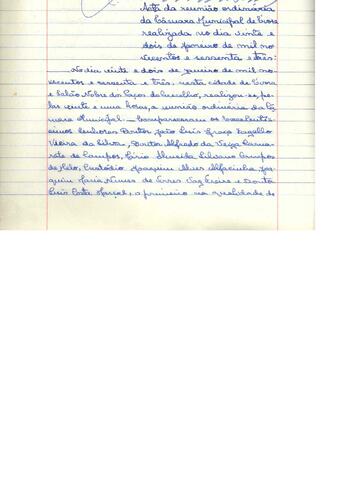 Acta da reunião ordinária
da Câmara Municipal de Évora
realizada no dia vinte e
dois de Janeiro de mil no
vecentos e sessenta e três:
No dia vinte e dois de Janeiro de mil no
vecentos e sessenta e três, nesta cidade de Évora
e Salão Nobre dos Paços do Concelho, realizou-se, pe
las vinte e uma horas, a reunião ordinária da Câ
mara Municipal. Compareceram os Excelentís
simos Senhores Doutor João Luís
Vieira da Silva, Doutor Alfredo da Veiga
de Campos, Lírio Almeida Silvano Campos
de Melo, Custódio Joaquim Alves Alfacinha, Joa
quim Maria Nunes de Torres Vaz Freire e Doutor
Luís Costa, o primeiro na qualidade de